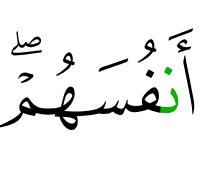 أَنفُسَهُمْۖ